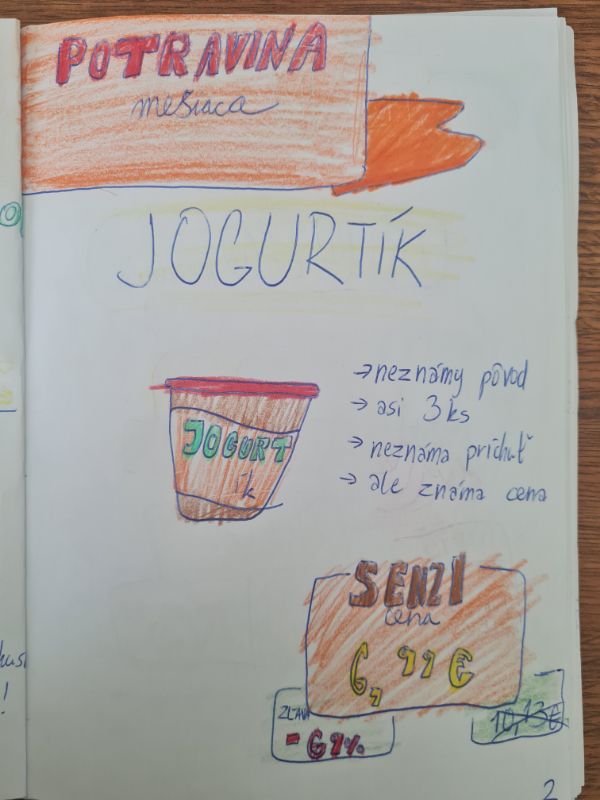 POTRAVINA
mesiaca
JOGURTÍK
→ neznámy pôvod
→ asi 3 ks
→ neznáma príchuť
→ ale známa cena
JOGURT
ík
SENZI
cena
6,99 €
ZĽAVA
- 69%
10,13€
2